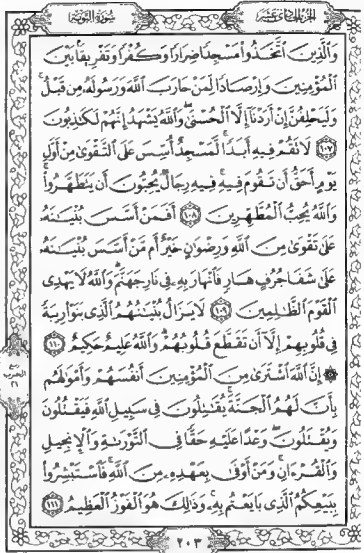 الجُزْءُ الحَادِي عَشَرَ سُورَةُ التَّوْبَةِ
وَٱلَّذِينَ ٱتَّخَذُوا۟ مَسْجِدًا ضِرَارًا وَكُفْرًا وَتَفْرِيقًۢا بَيْنَ
ٱلْمُؤْمِنِينَ وَإِرْصَادًا لِّمَنْ حَارَبَ ٱللَّهَ وَرَسُولَهُۥ مِن قَبْلُ ۚ
وَلَيَحْلِفُنَّ إِنْ أَرَدْنَآ إِلَّا ٱلْحُسْنَىٰ ۖ وَٱللَّهُ يَشْهَدُ إِنَّهُمْ لَكَـٰذِبُونَ
١٠٧ لَا تَقُمْ فِيهِ أَبَدًا ۚ لَّمَسْجِدٌ أُسِّسَ عَلَى ٱلتَّقْوَىٰ مِنْ أَوَّلِ
يَوْمٍ أَحَقُّ أَن تَقُومَ فِيهِ ۚ فِيهِ رِجَالٌ يُحِبُّونَ أَن يَتَطَهَّرُوا۟ ۚ
وَٱللَّهُ يُحِبُّ ٱلْمُطَّهِّرِينَ ١٠٨ أَفَمَنْ أَسَّسَ بُنْيَـٰنَهُۥ
عَلَىٰ تَقْوَىٰ مِنَ ٱللَّهِ وَرِضْوَٰنٍ خَيْرٌ أَم مَّنْ أَسَّسَ بُنْيَـٰنَهُۥ
عَلَىٰ شَفَا جُرُفٍ هَارٍ فَٱنْهَارَ بِهِۦ فِى نَارِ جَهَنَّمَ ۗ وَٱللَّهُ لَا يَهْدِى
ٱلْقَوْمَ ٱلظَّـٰلِمِينَ ١٠٩ لَا يَزَالُ بُنْيَـٰنُهُمُ ٱلَّذِى بَنَوْا۟ رِيبَةً
فِى قُلُوبِهِمْ إِلَّآ أَن تَقَطَّعَ قُلُوبُهُمْ ۗ وَٱللَّهُ عَلِيمٌ حَكِيمٌ ١١٠
۞ إِنَّ ٱللَّهَ ٱشْتَرَىٰ مِنَ ٱلْمُؤْمِنِينَ أَنفُسَهُمْ وَأَمْوَٰلَهُم
بِأَنَّ لَهُمُ ٱلْجَنَّةَ ۚ يُقَـٰتِلُونَ فِى سَبِيلِ ٱللَّهِ فَيَقْتُلُونَ
وَيُقْتَلُونَ ۖ وَعْدًا عَلَيْهِ حَقًّا فِى ٱلتَّوْرَىٰةِ وَٱلْإِنجِيلِ
وَٱلْقُرْءَانِ ۚ وَمَنْ أَوْفَىٰ بِعَهْدِهِۦ مِنَ ٱللَّهِ ۚ فَٱسْتَبْشِرُوا۟
بِبَيْعِكُمُ ٱلَّذِى بَايَعْتُم بِهِۦ ۚ وَذَٰلِكَ هُوَ ٱلْفَوْزُ ٱلْعَظِيمُ ١١١
٢٠٣